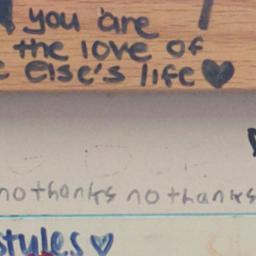 you are
the love of
else's life♥
nothanks nothanks
styles♡